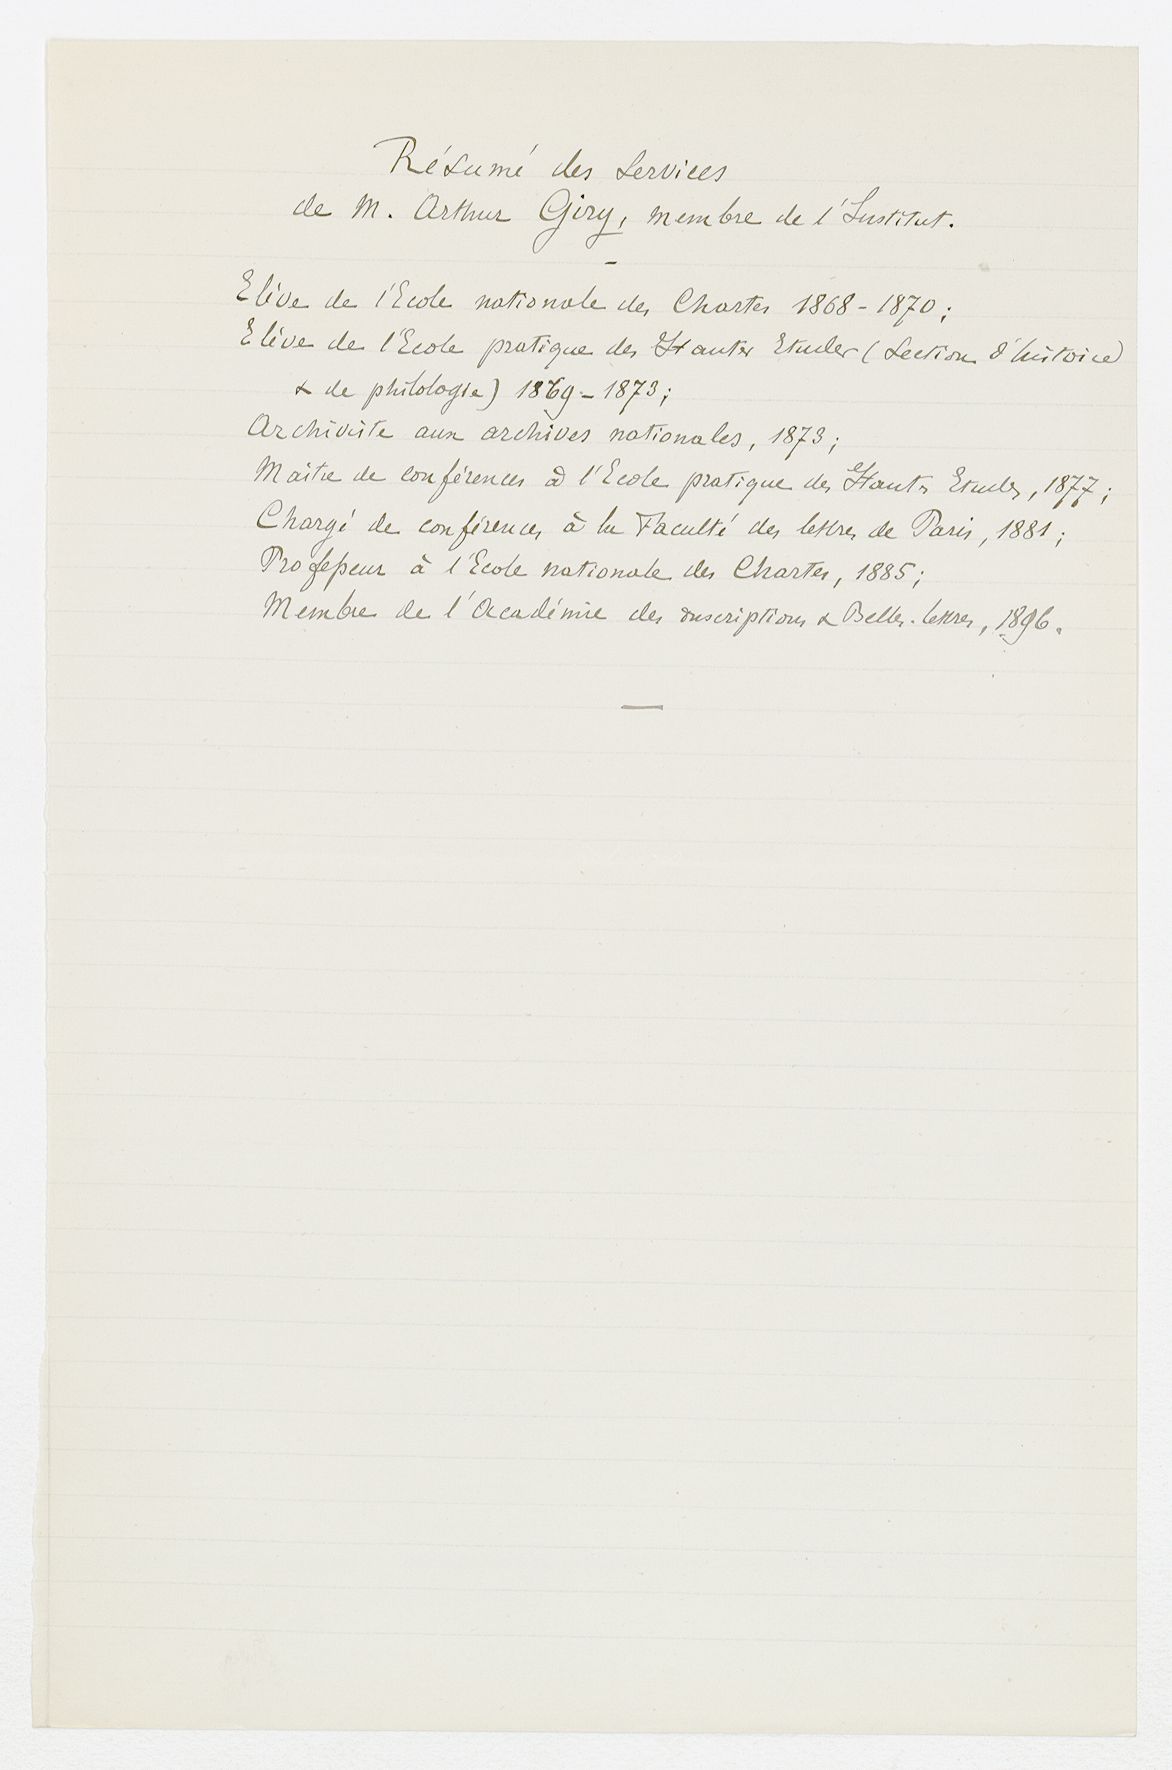 Résumé des services
de M. Arthur Giry, membre de l'Institut.
-
Elève de l'Ecole nationale des Chartes 1868-1870;
Elève de l'Ecole pratique des Hautes Etudes (Section d'histoire
& de philologie) 1869-1873;
Archiviste aux archives nationales, 1873;
Maître de conférences à l'Ecole pratique des Hautes Etudes, 1877;
Chargé de conférences à la Faculté des lettres de Paris, 1881;
Professeur à l'Ecole nationale des Chartes, 1885;
Membre de l'Académie des inscriptions & Belles-lettres, 1896.